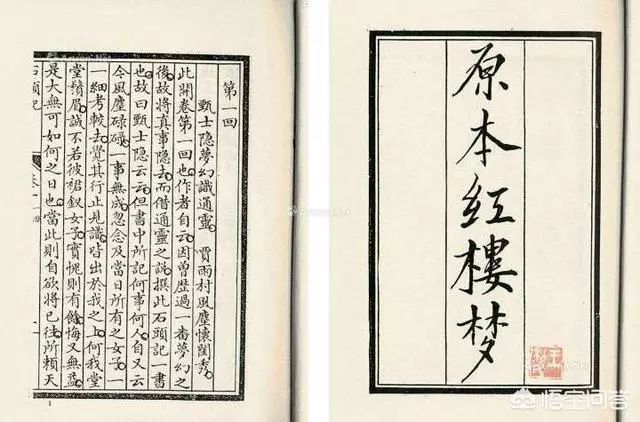 第一回
甄士隐夢幻識通靈 賈雨村風塵懷閨秀
此開卷第一回也作者自云因曾歷過一番夢幻之
後故將真事隱去而借通靈之說撰此石頭記一書
也故曰甄士隐云云但書中所記何事何人自又云
今風塵碌碌一事無成忽念及當日所有之女子一
一細考較去覺其行止見識皆出於我之上何我堂
堂鬚眉誠不若彼裙釵女子實愧則有餘悔又無益
是大無可如何之日也當此則自欲將已往所賴天
石頭記 卷一
原本红樓梦
悟空问答